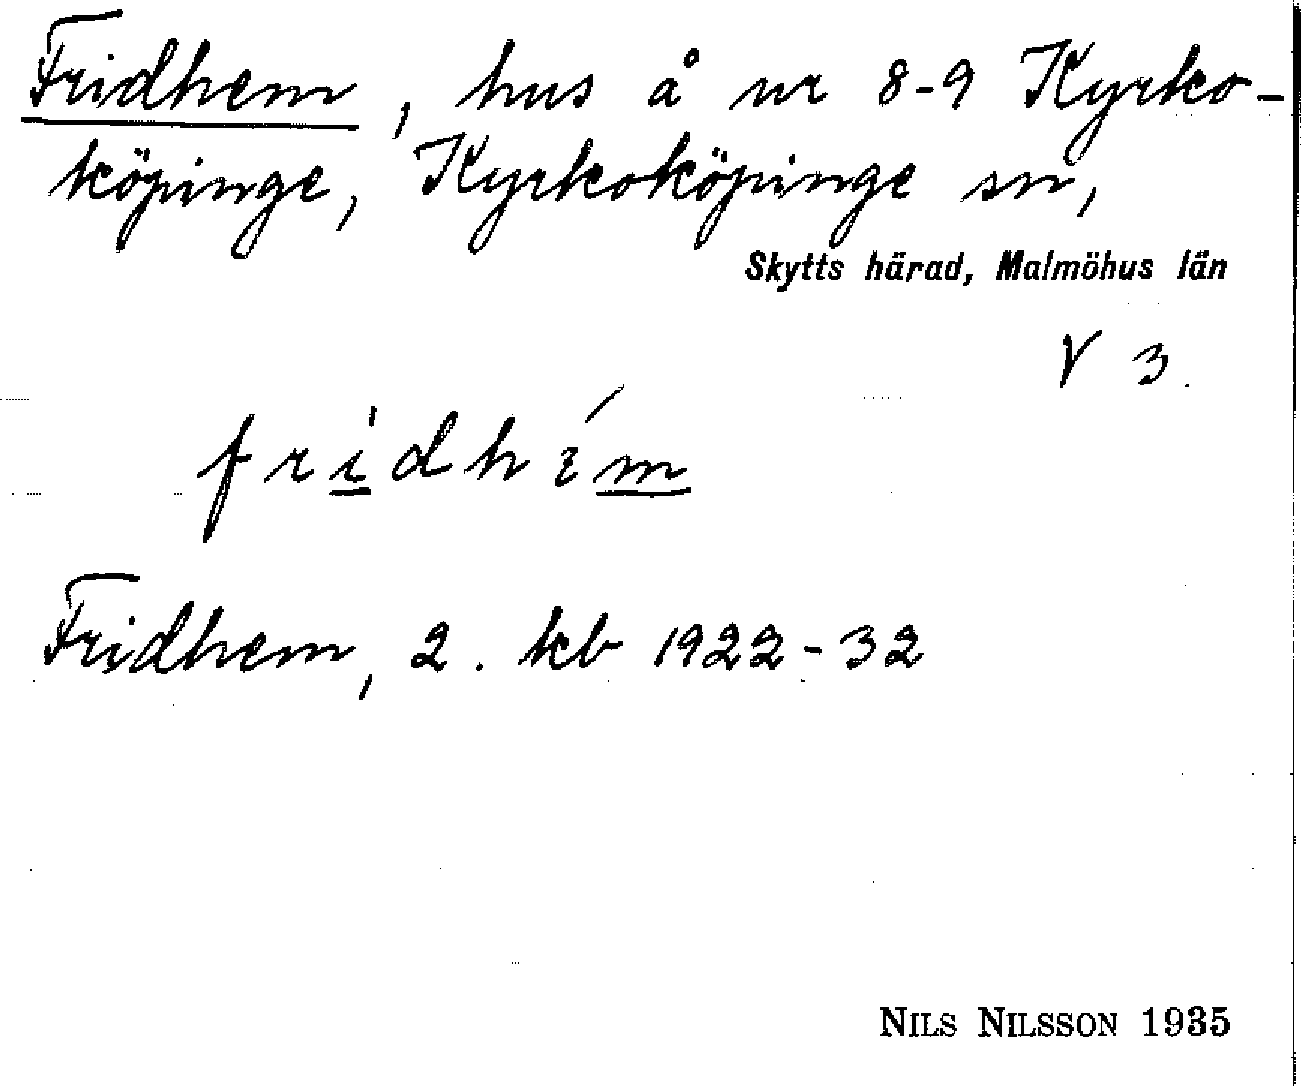 Fridhem, hus å nr 8-9 Kyrko-
köpinge, Kyrkoköpinge sn,
Skytts härad, Malmöhus län
V 3.
Fridhem, 2. kb 1922-32
NILS NILSSON 1935